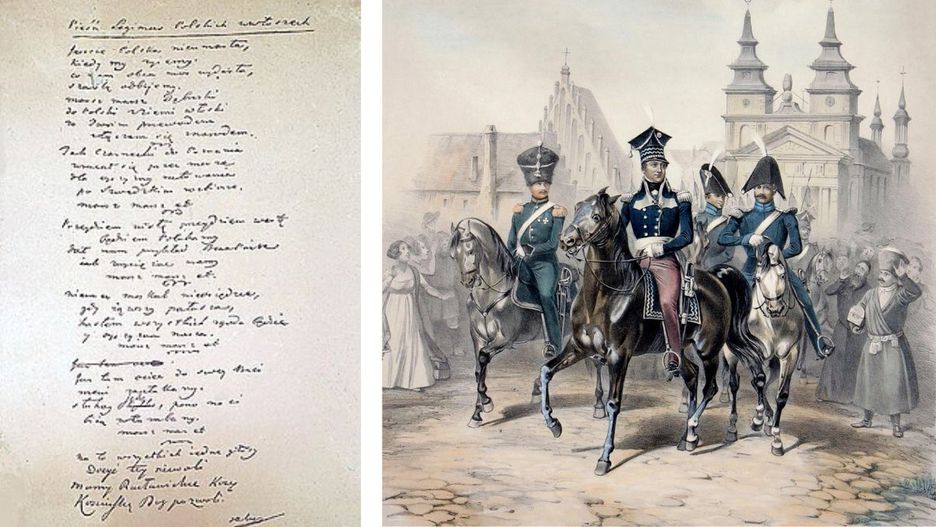 Pieśń Legionów Polskich we Włoszech
Jeszcze Polska nie umarła,
kiedy my żyjemy
co nam obca moc wydarła,
szablą odbijemy.
marsz marsz Dąbrowski
do Polski z ziemi włoski
za Twoim przewodem
złączem się z narodem.
Jak Czarnecki do Poznania
wracał się przez morze
dla ojczyzny ratowania
po Szwedzkim rozbiorze.
marsz marsz et
Przejdziem Wisłę przejdziem Wartę
będziem Polakami
dał nam przykład Bonaparte
jak zwyciężać mamy
marsz marsz et
niemiec moskal nieosiędzie,
gdy jąwszy pałasza,
hasłem wszystkich zgoda będzie
y ojczyzna nasza.
marsz marsz et
Już tam ociec do swej Basi
mówi zapłakany.
słuchaj pono nasi
biją w tarabany
marsz marsz et
na to wszystkich jedne głosy
Dosyć tej niewoli
Mamy Racławickie Kosy
Kościuszkę Bóg pozwoli.